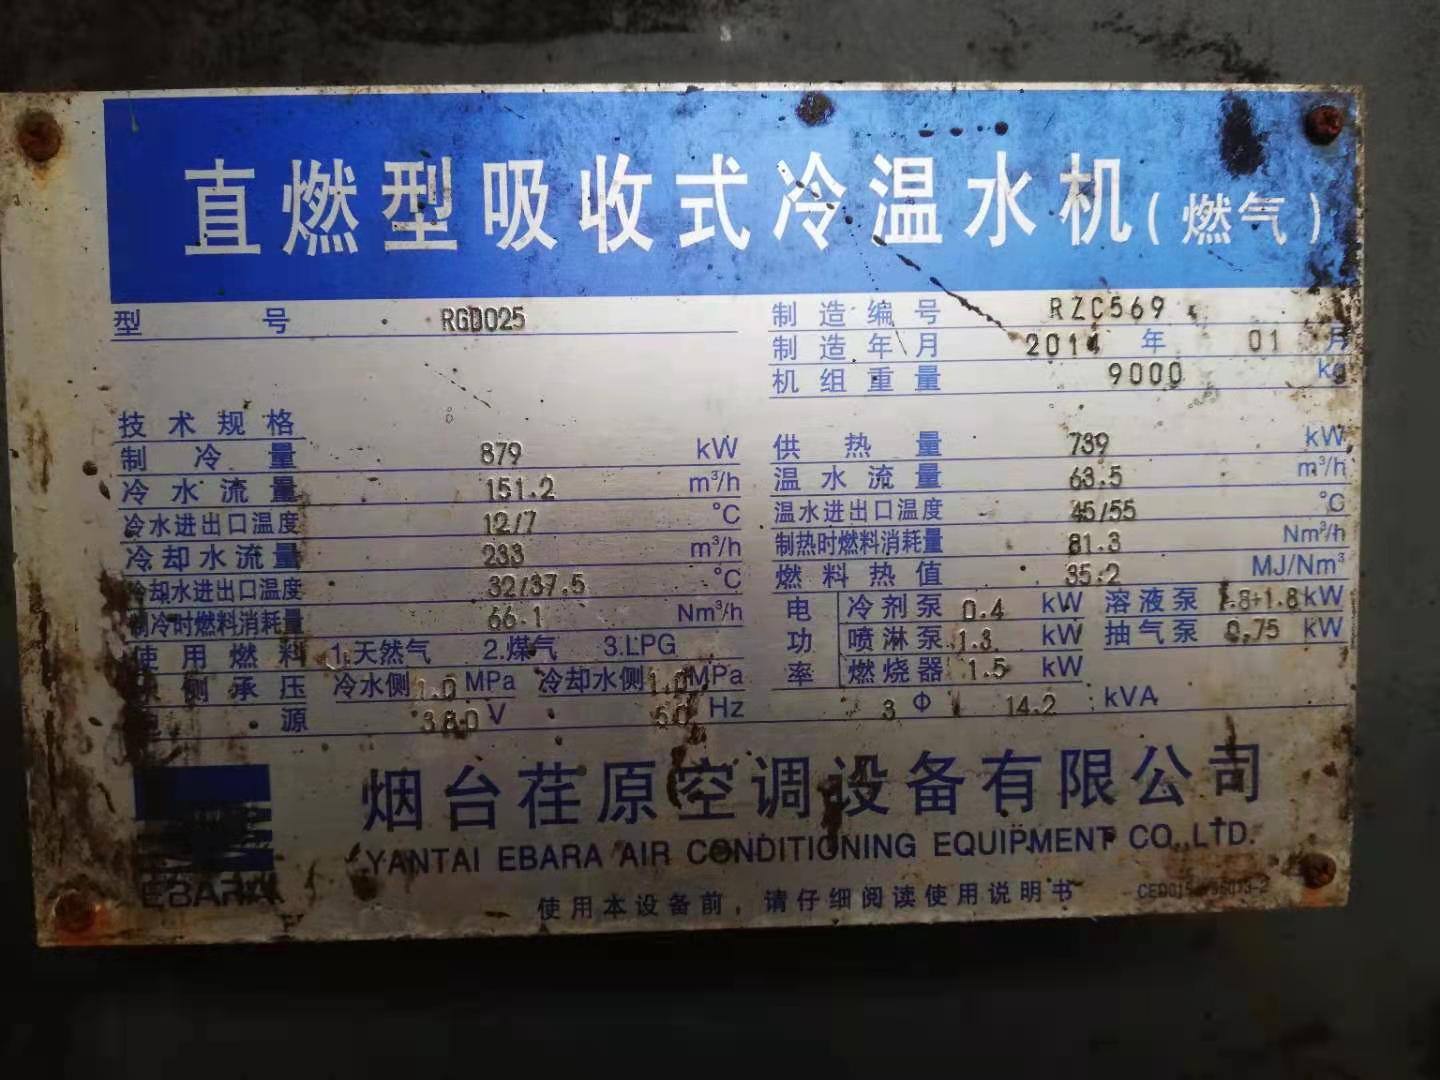 直燃型吸收式冷温水机(燃气)
型 号 RGD025
制造编号 RZC569
制造年月 2014 年 01 月
机组重量 9000 kg
技术规格
制冷量 879 kW 供热量 739 kW
冷水流量 151.2 m³/h 温水流量 63.5 m³/h
冷水进出口温度 12/7 ℃ 温水进出口温度 45/55 ℃
冷却水流量 233 m³/h 制热时燃料消耗量 81.3 Nm³/h
冷却水进出口温度 32/37.5 ℃ 燃料热值 35.2 MJ/Nm³
制冷时燃料消耗量 66.1 Nm³/h 电功率 冷剂泵 0.4 kW 溶液泵 1.8+1.8 kW
使用燃料 1.天然气 2.煤气 3.LPG 喷淋泵 1.3 kW 抽气泵 0.75 kW
侧承压 冷水侧 1.0 MPa 冷却水侧 1.0 MPa 燃烧器 1.5 kW
电源 380 V 50 Hz 3 Φ 14.2 kVA
烟台荏原空调设备有限公司
YANTAI EBARA AIR CONDITIONING EQUIPMENT CO.,LTD.
EBARA
使用本设备前，请仔细阅读使用说明书